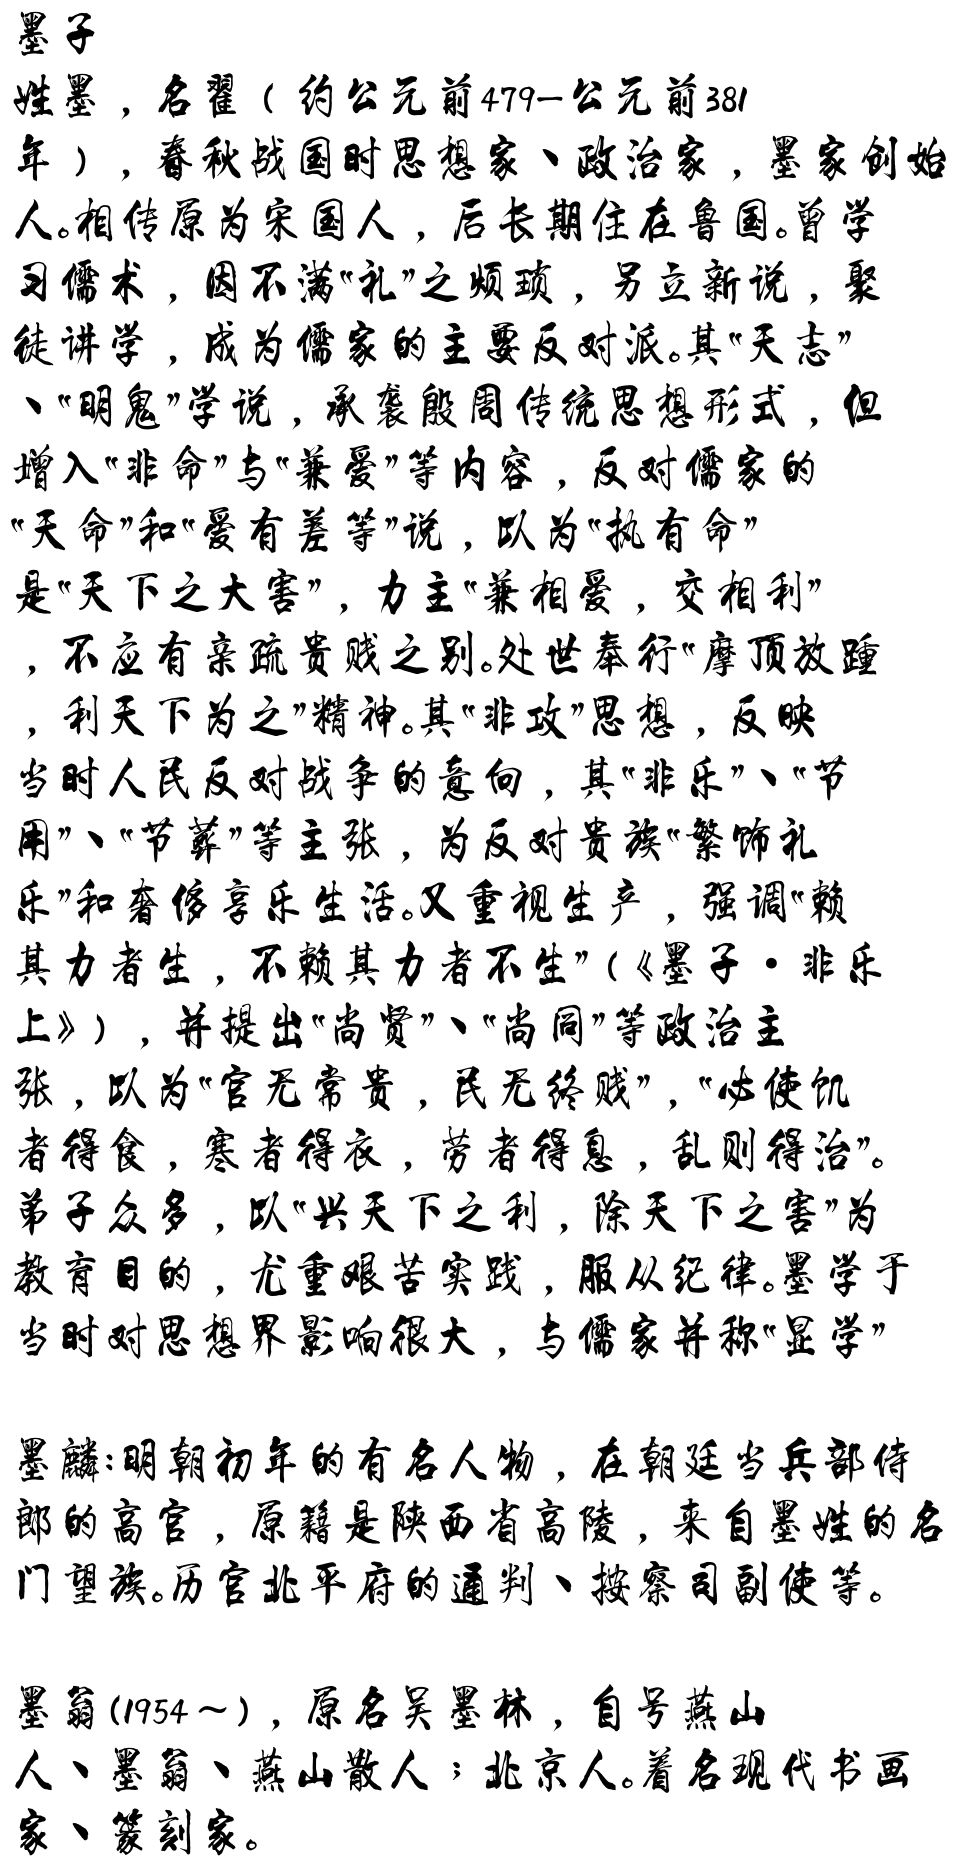 墨子
姓墨，名翟（约公元前479—公元前381
年），春秋战国时思想家、政治家，墨家创始
人。相传原为宋国人，后长期住在鲁国。曾学
习儒术，因不满“礼”之烦琐，另立新说，聚
徒讲学，成为儒家的主要反对派。其“天志”
、“明鬼”学说，承袭殷周传统思想形式，但
增入“非命”与“兼爱”等内容，反对儒家的
“天命”和“爱有差等”说，以为“执有命”
是“天下之大害”，力主“兼相爱，交相利”
，不应有亲疏贵贱之别。处世奉行“摩顶放踵
，利天下为之”精神。其“非攻”思想，反映
当时人民反对战争的意向，其“非乐”、“节
用”、“节葬”等主张，为反对贵族“繁饰礼
乐”和奢侈享乐生活。又重视生产，强调“赖
其力者生，不赖其力者不生”（《墨子·非乐
上》），并提出“尚贤”、“尚同”等政治主
张，以为“官无常贵，民无终贱”，“必使饥
者得食，寒者得衣，劳者得息，乱则得治”。
弟子众多，以“兴天下之利，除天下之害”为
教育目的，尤重艰苦实践，服从纪律。墨学于
当时对思想界影响很大，与儒家并称“显学”
墨麟:明朝初年的有名人物，在朝廷当兵部侍
郎的高官，原籍是陕西省高陵，来自墨姓的名
门望族。历官北平府的通判、按察司副使等。
墨翁(1954～)，原名吴墨林，自号燕山
人、墨翁、燕山散人；北京人。着名现代书画
家、篆刻家。